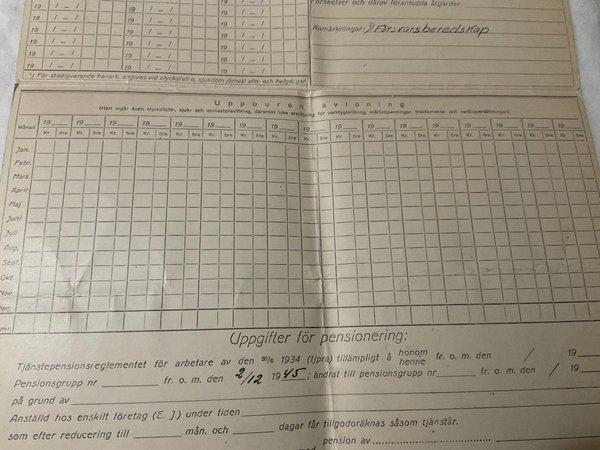 Förseelser och därav föranledda åtgärder.
19 / – / 19 / – / 19 / – /
19 / – / 19 / – / 19 / – /
19 / – / 19 / – / 19 / – /
19 / – / 19 / – / 19 / – /
Anmärkningar: 1) Försvarsberedskap
*) För stadigvarande hanarb. angives vid olycksfall o. sjukdom jämväl sön- och helgdagar.
Uppburen avlöning
(Häri ingår även olycksfalls-, sjuk- och semesteravlöning, däremot icke ersättning för verktygsslitning, måltidspenningar, traktaments- och nattlogiersättningar)
Månad 19 19 19 19 19 19 19 19 19 19 19 19
Kr. öre Kr. öre Kr. öre Kr. öre Kr. öre Kr. öre Kr. öre Kr. öre Kr. öre Kr. öre Kr. öre Kr. öre
Jan.
Febr.
Mars
April
Maj
Juni
Juli
Aug.
Sept.
Okt.
Nov.
Dec.
Uppgifter för pensionering:
Tjänstepensionsreglementet för arbetare av den 1934 (tjpra) tillämpligt å honom henne fr. o. m. den / 19
Pensionsgrupp nr fr. o. m. den 2/12 1945; ändrat till pensionsgrupp nr fr. o. m. den / 19
på grund av
Anställd hos enskilt företag (E. J.) under tiden
som efter reducering till mån. och dagar får tillgodoräknas såsom tjänstår.
med pension av